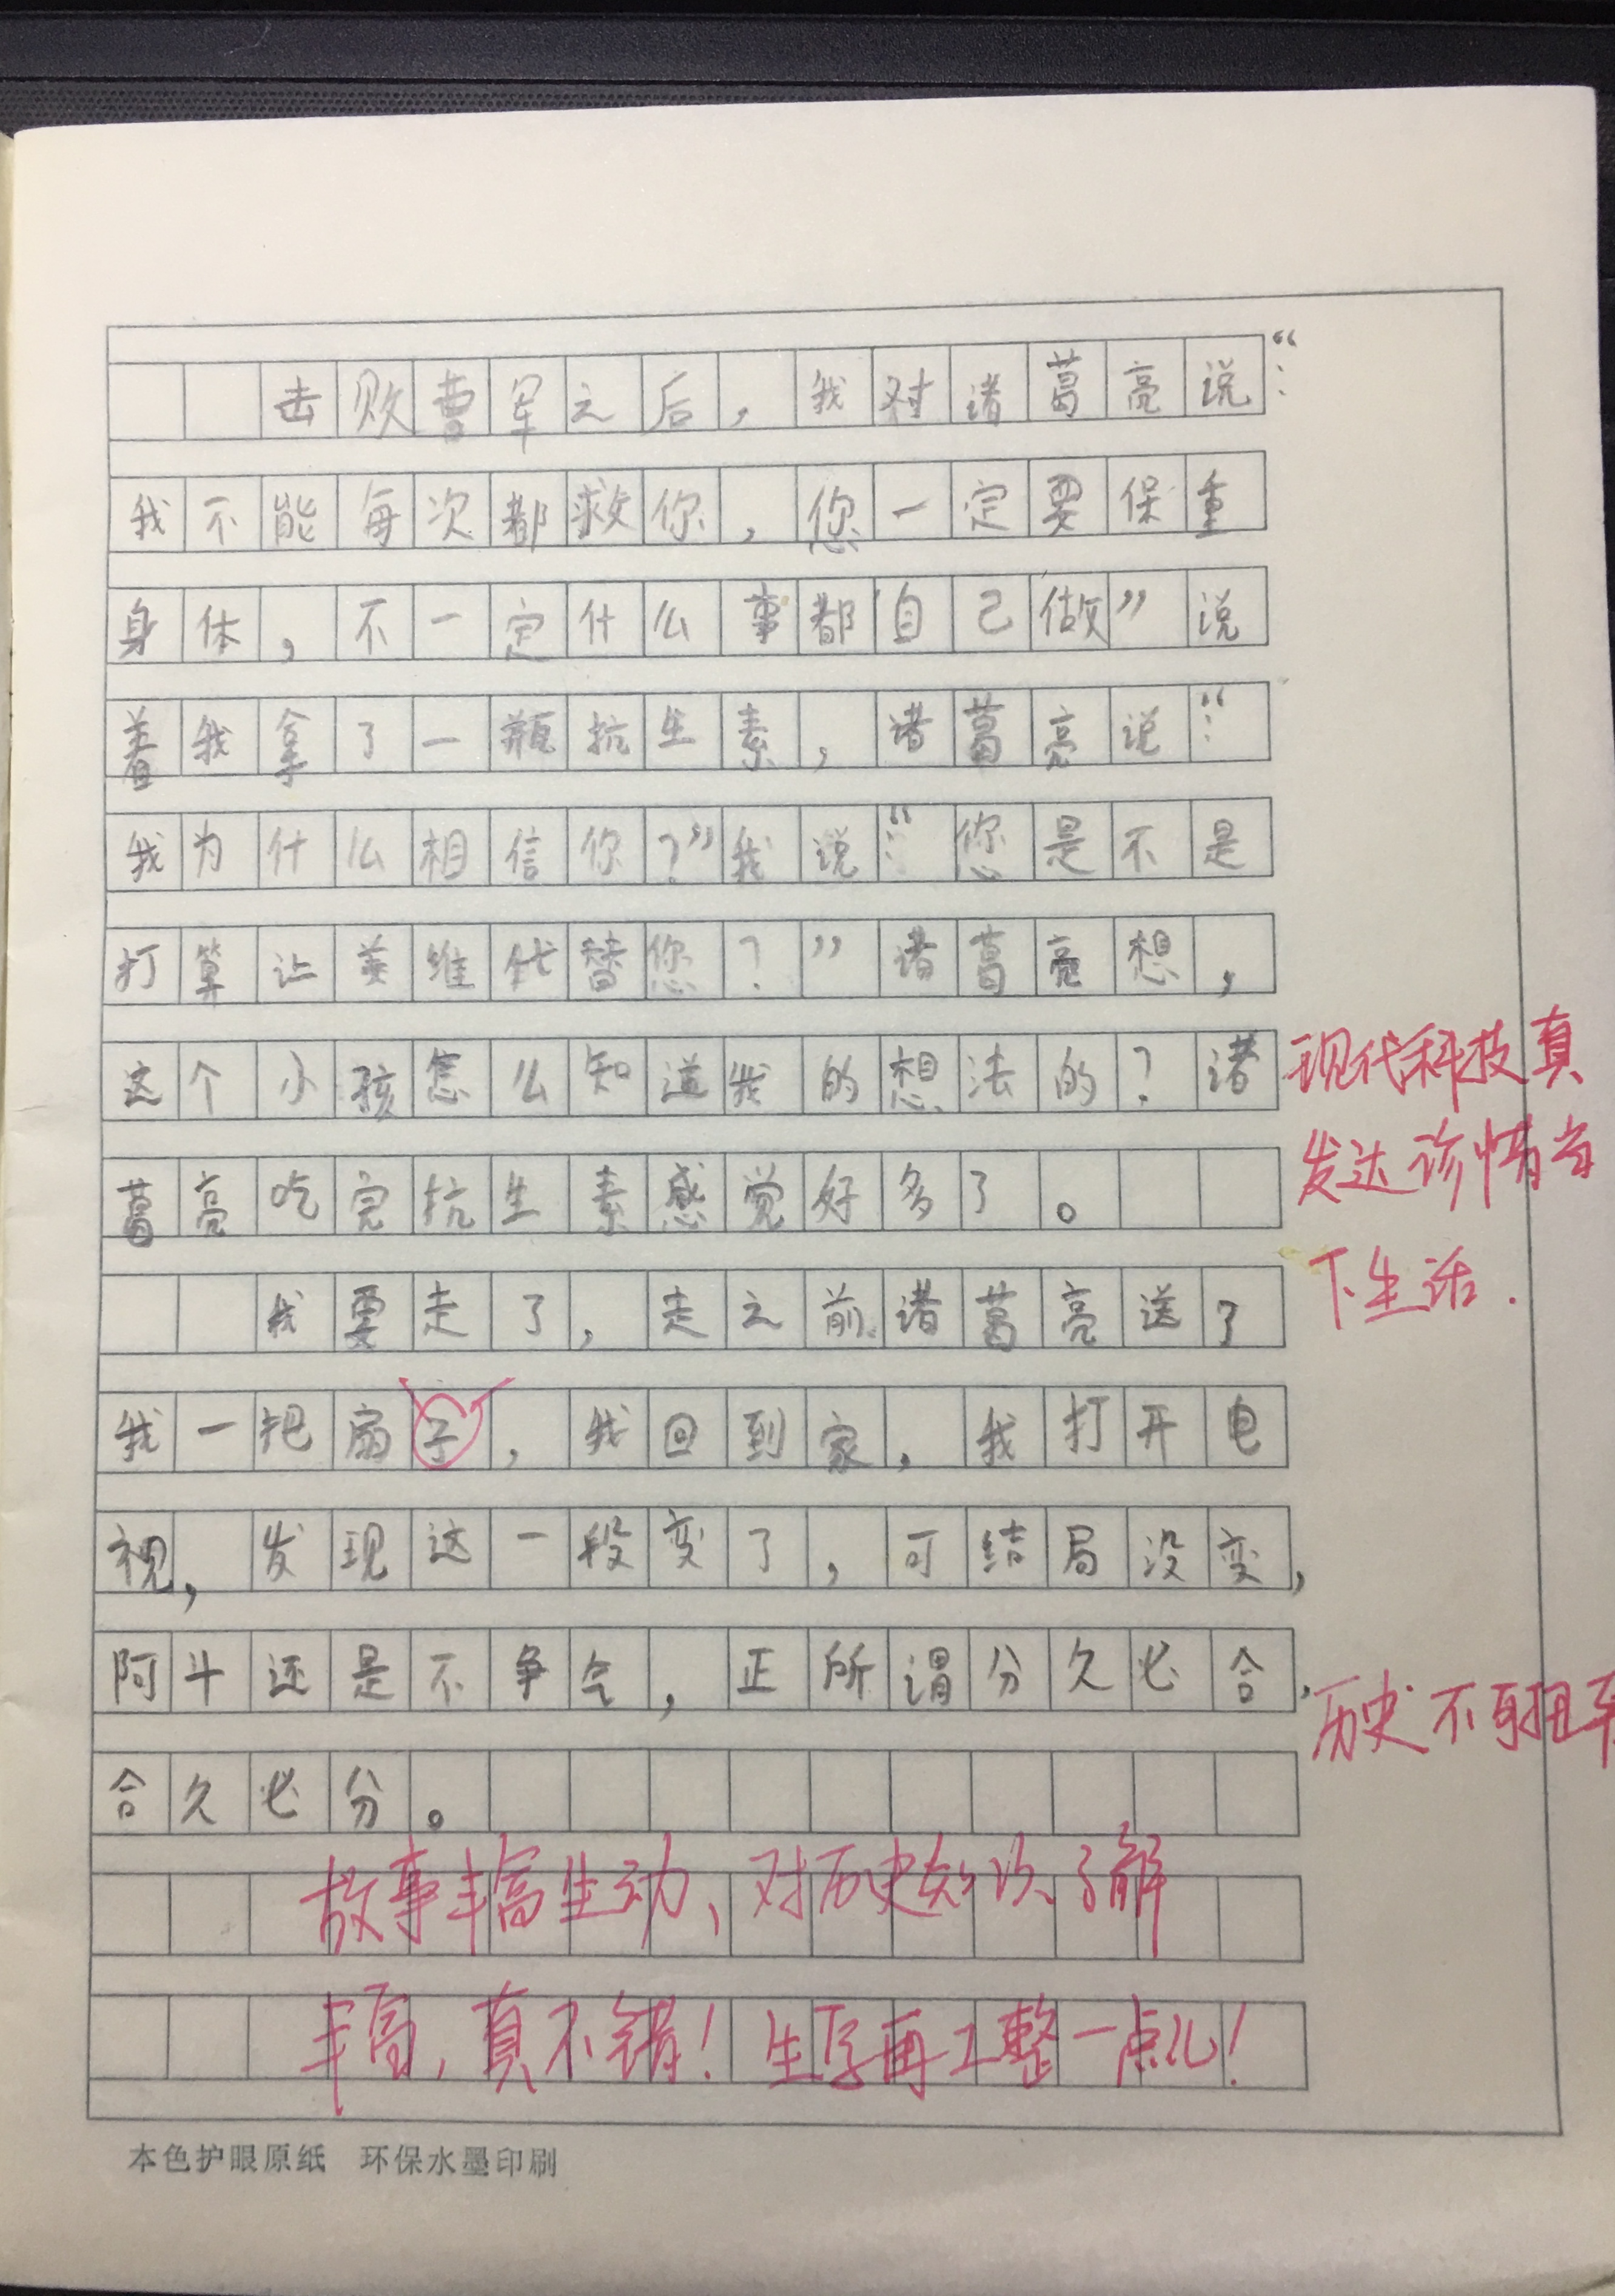 击败曹军之后，我对诸葛亮说：“
我不能每次都救你，您一定要保重
身体，不一定什么事都自己做”说
着我拿了一瓶抗生素，诸葛亮说：“
我为什么相信你？”我说：“您是不是
打算让姜维代替您？”诸葛亮想，
这个小孩怎么知道我的想法的？诸
现代科技真
发达 该惜当
葛亮吃完抗生素感觉好多了。
下生活.
我要走了，走之前诸葛亮送了
我一把扇子，我回到家，我打开电
视，发现这一段变了，可结局没变，
阿斗还是不争气，正所谓分久必合，
历史不可扭转
合久必分。
故事丰富生动、对历史知识了解
丰富，真不错！生字再工整一点儿！
本色护眼原纸 环保水墨印刷